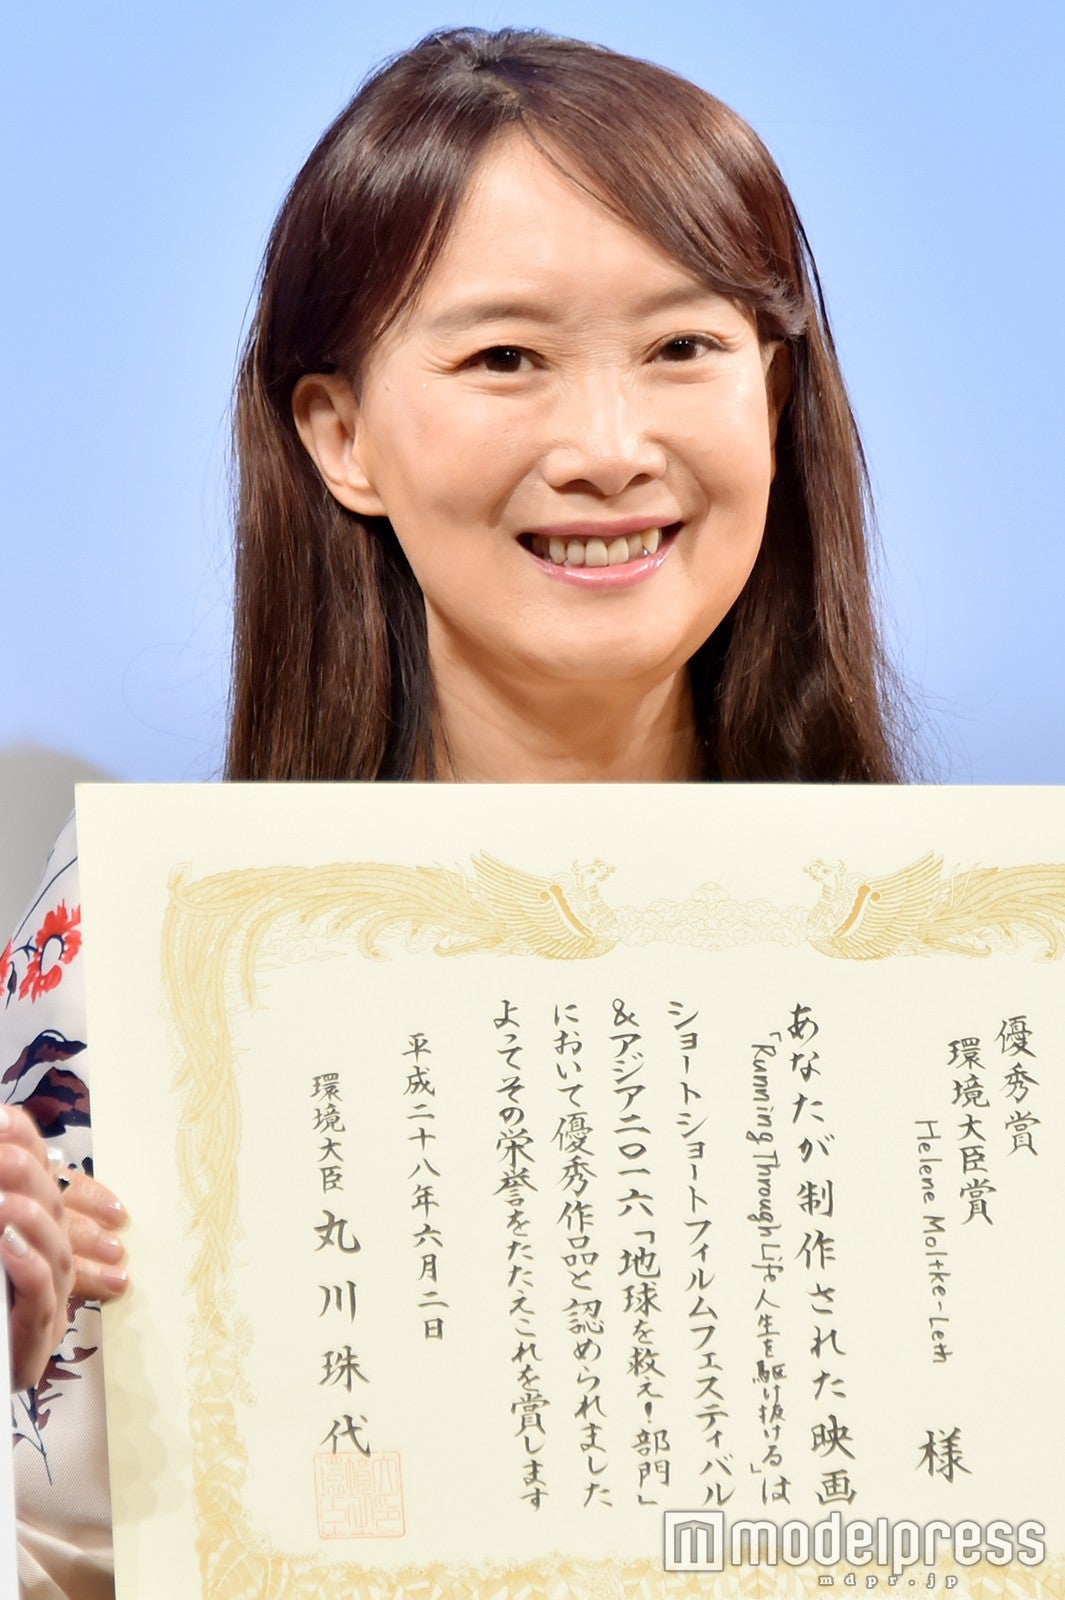 優秀賞
環境大臣賞
Helene Moltke-Leth 様
あなたが制作された映画
「Running Through Life 人生を駆け抜ける」は
ショートショートフィルムフェスティバル
&アジア二〇一六「地球を救え!部門」
において優秀作品と認められました
よってその栄誉をたたえこれを賞します
平成二十八年六月二日
環境大臣 丸川珠代
modelpress
mdpr.jp